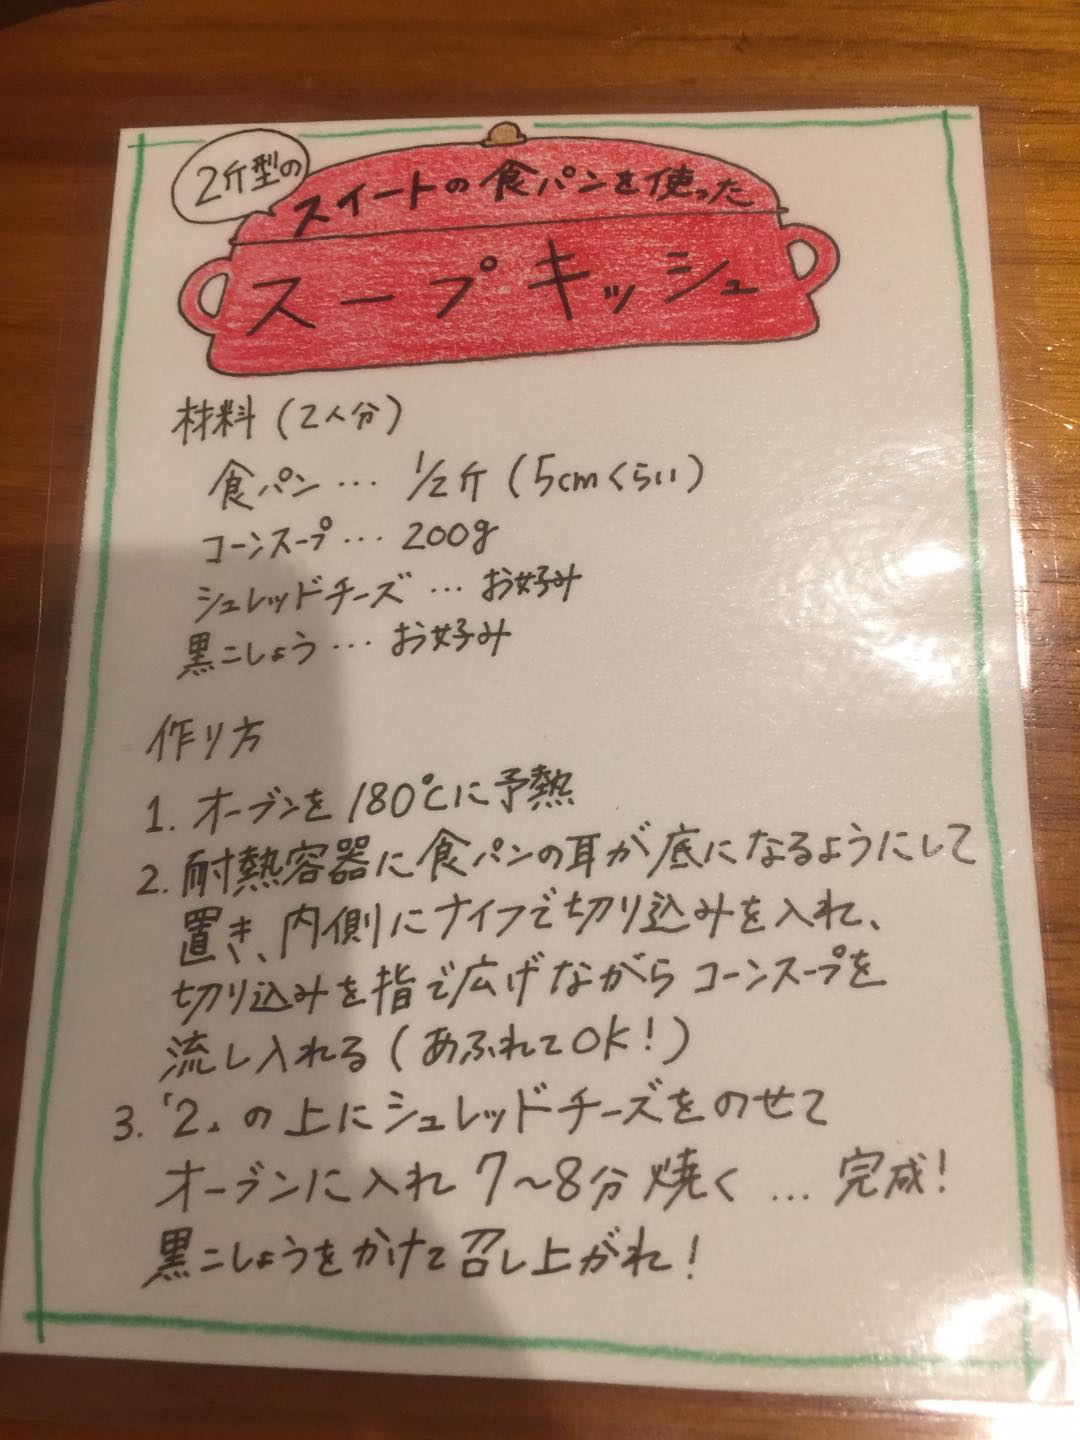 2斤型の
スイートの食パンを使った
スープキッシュ
材料(2人分)
食パン… 1/2斤(5cmくらい)
コーンスープ… 200g
シュレッドチーズ… お好み
黒こしょう… お好み
作り方
1. オーブンを180℃に予熱
2. 耐熱容器に食パンの耳が底になるようにして
置き、内側にナイフで切り込みを入れ、
切り込みを指で広げながらコーンスープを
流し入れる(あふれてOK!)
3.「2」の上にシュレッドチーズをのせて
オーブンに入れ7〜8分焼く…完成!
黒こしょうをかけて召し上がれ!